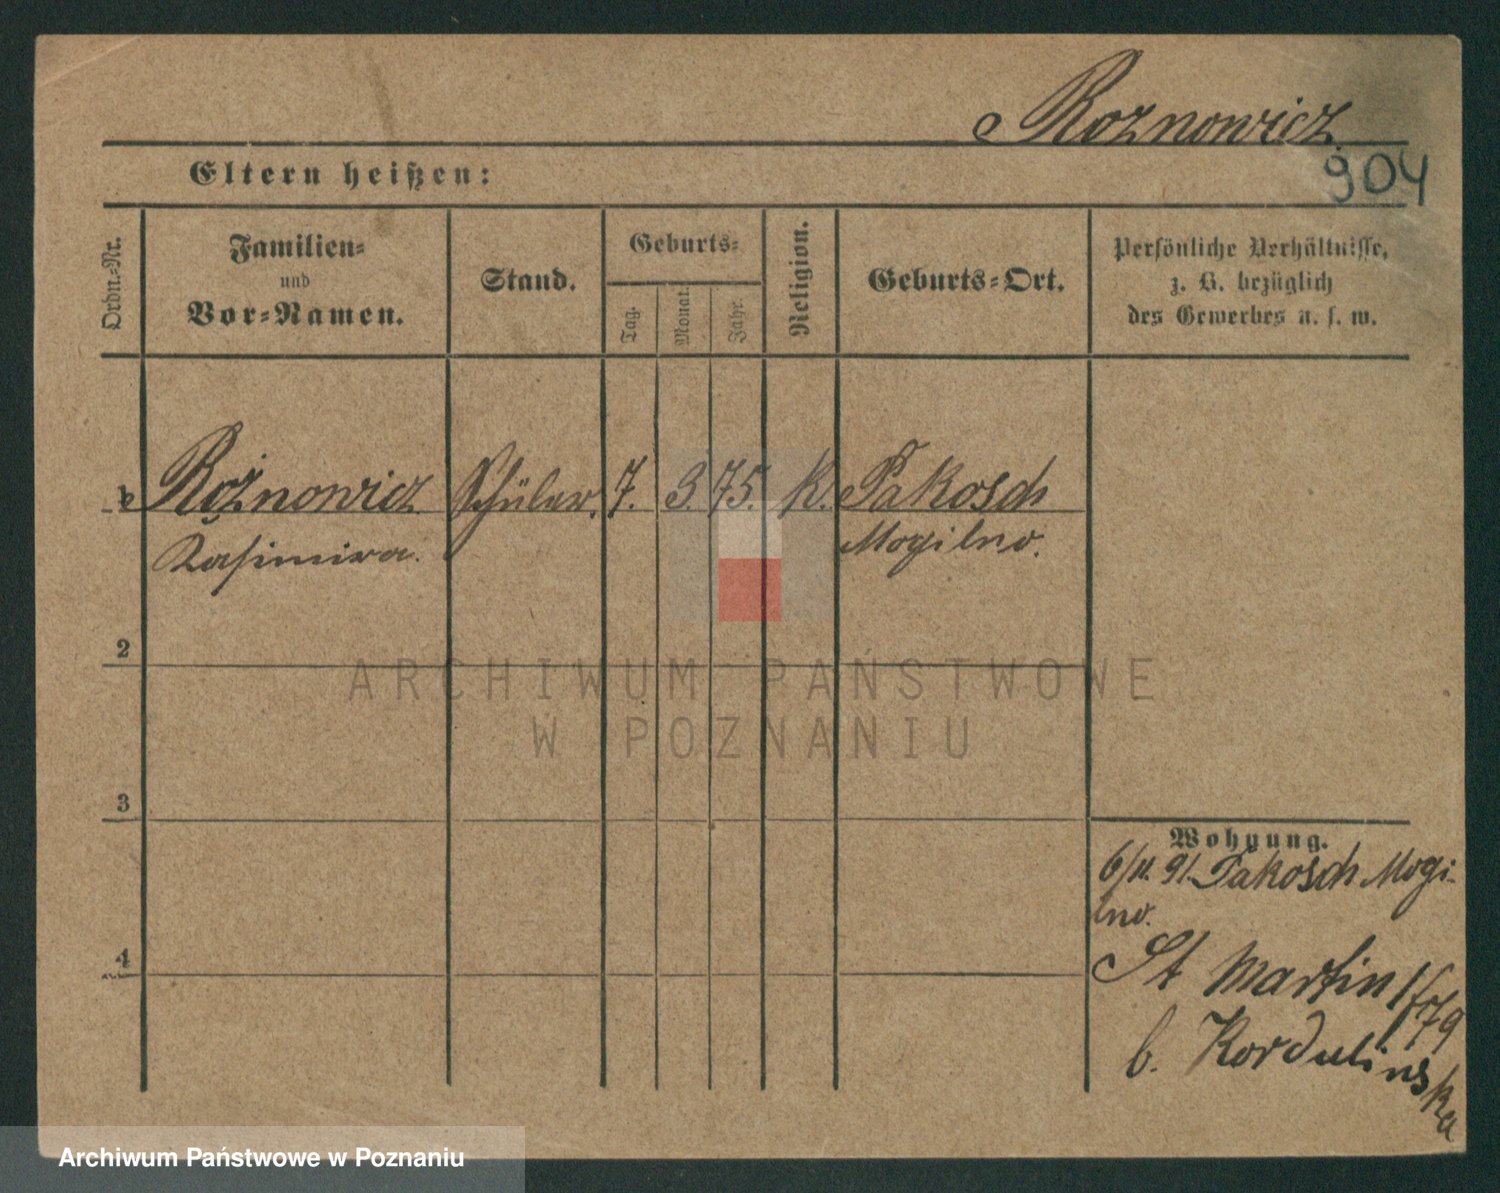 Roznowicz
904
Eltern heißen:
Ordn.-Nr.
Familien-
und
Vor-Namen.
Stand.
Geburts-
Tag.
Monat.
Jahr.
Religion.
Geburts-Ort.
Persönliche Verhältnisse,
z. B. bezüglich
des Gewerbes u. s. w.
Rożnowicz Schüler. 7. 3. 75. K. Pakosch
Kasimira. Mogilno.
2
3
4
Wohnung.
6/11. 91. Pakosch Mogi-
lno.
St Martin
b. Kordulinska
ARCHIWUM PAŃSTWOWE
W POZNANIU
Archiwum Państwowe w Poznaniu